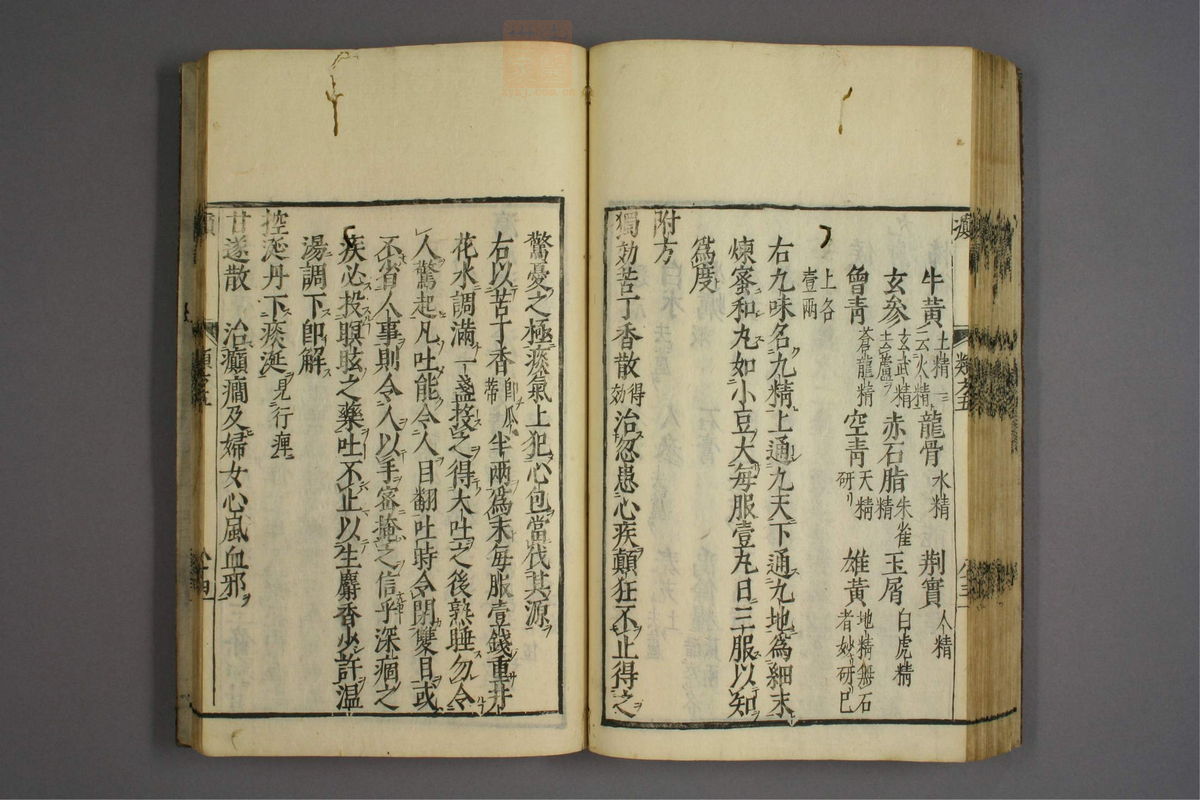 牛黄 土精一云火精 龍骨 水精 荆實 人精
玄参 玄武精去蘆 赤石脂 朱雀精 玉屑 白虎精
曾青 蒼龍精 空青 天精研 雄黄 地精無石者妙研已
上各壹兩
右九味名九精上通九天下通九地為細末
煉蜜和丸如小豆大每服壹丸日三服以知
為度
附方
獨効苦丁香散 得効 治忽患心疾顛狂不止得之
驚憂之極痰氣上犯心包當伐其源
右以苦丁香 即瓜蒂 半兩為末每服壹錢重井
花水調滿一盞投之得大吐之後熟睡勿令
人驚起凡吐能令人目翻吐時令閉雙目或
不省人事則令人以手密掩之信乎深痼之
疾必投瞑眩之藥吐不止以生麝香少許温
湯調下即解
控涎丹下痰涎 見行痺
甘遂散 治癲癇及婦女心風血邪